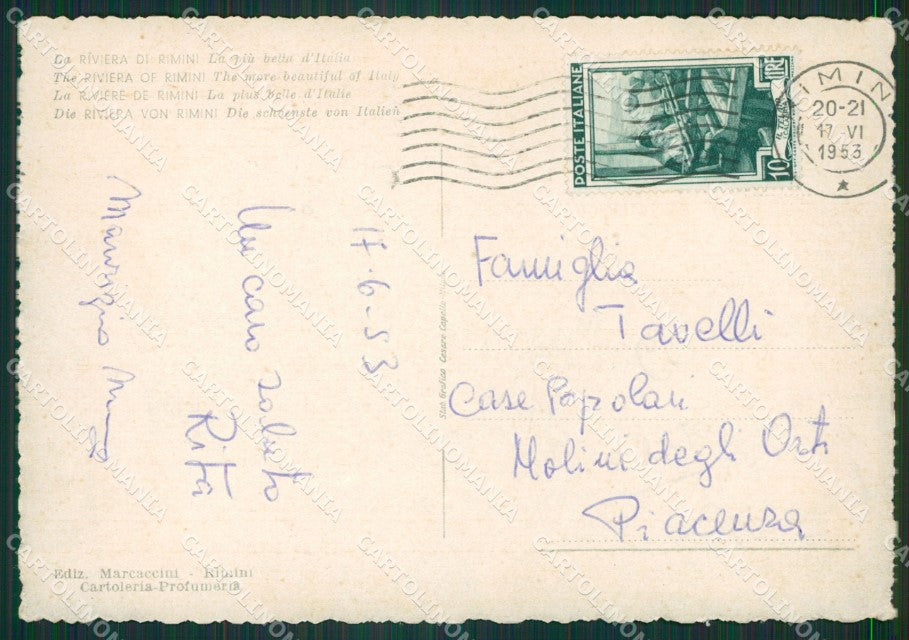 La RIVIERA DI RIMINI La più bella d'Italia
The RIVIERA OF RIMINI The more beautiful of Italy
La RIVIERE DE RIMINI La plus belle d'Italie
Die RIVIERA VON RIMINI Die schoenste von Italien
POSTE ITALIANE
LIRE
10
RIMINI
20-21
17 VI
1953
17-6-53
Un caro saluto
Rita
Maurizio
Famiglia
Tavelli
Case Popolari
Molini degli Orti
Piacenza
Stab. Grafico Cesare Capello
Ediz. Marcaccini - Rimini
Cartoleria-Profumeria
CARTOLINOMANIA